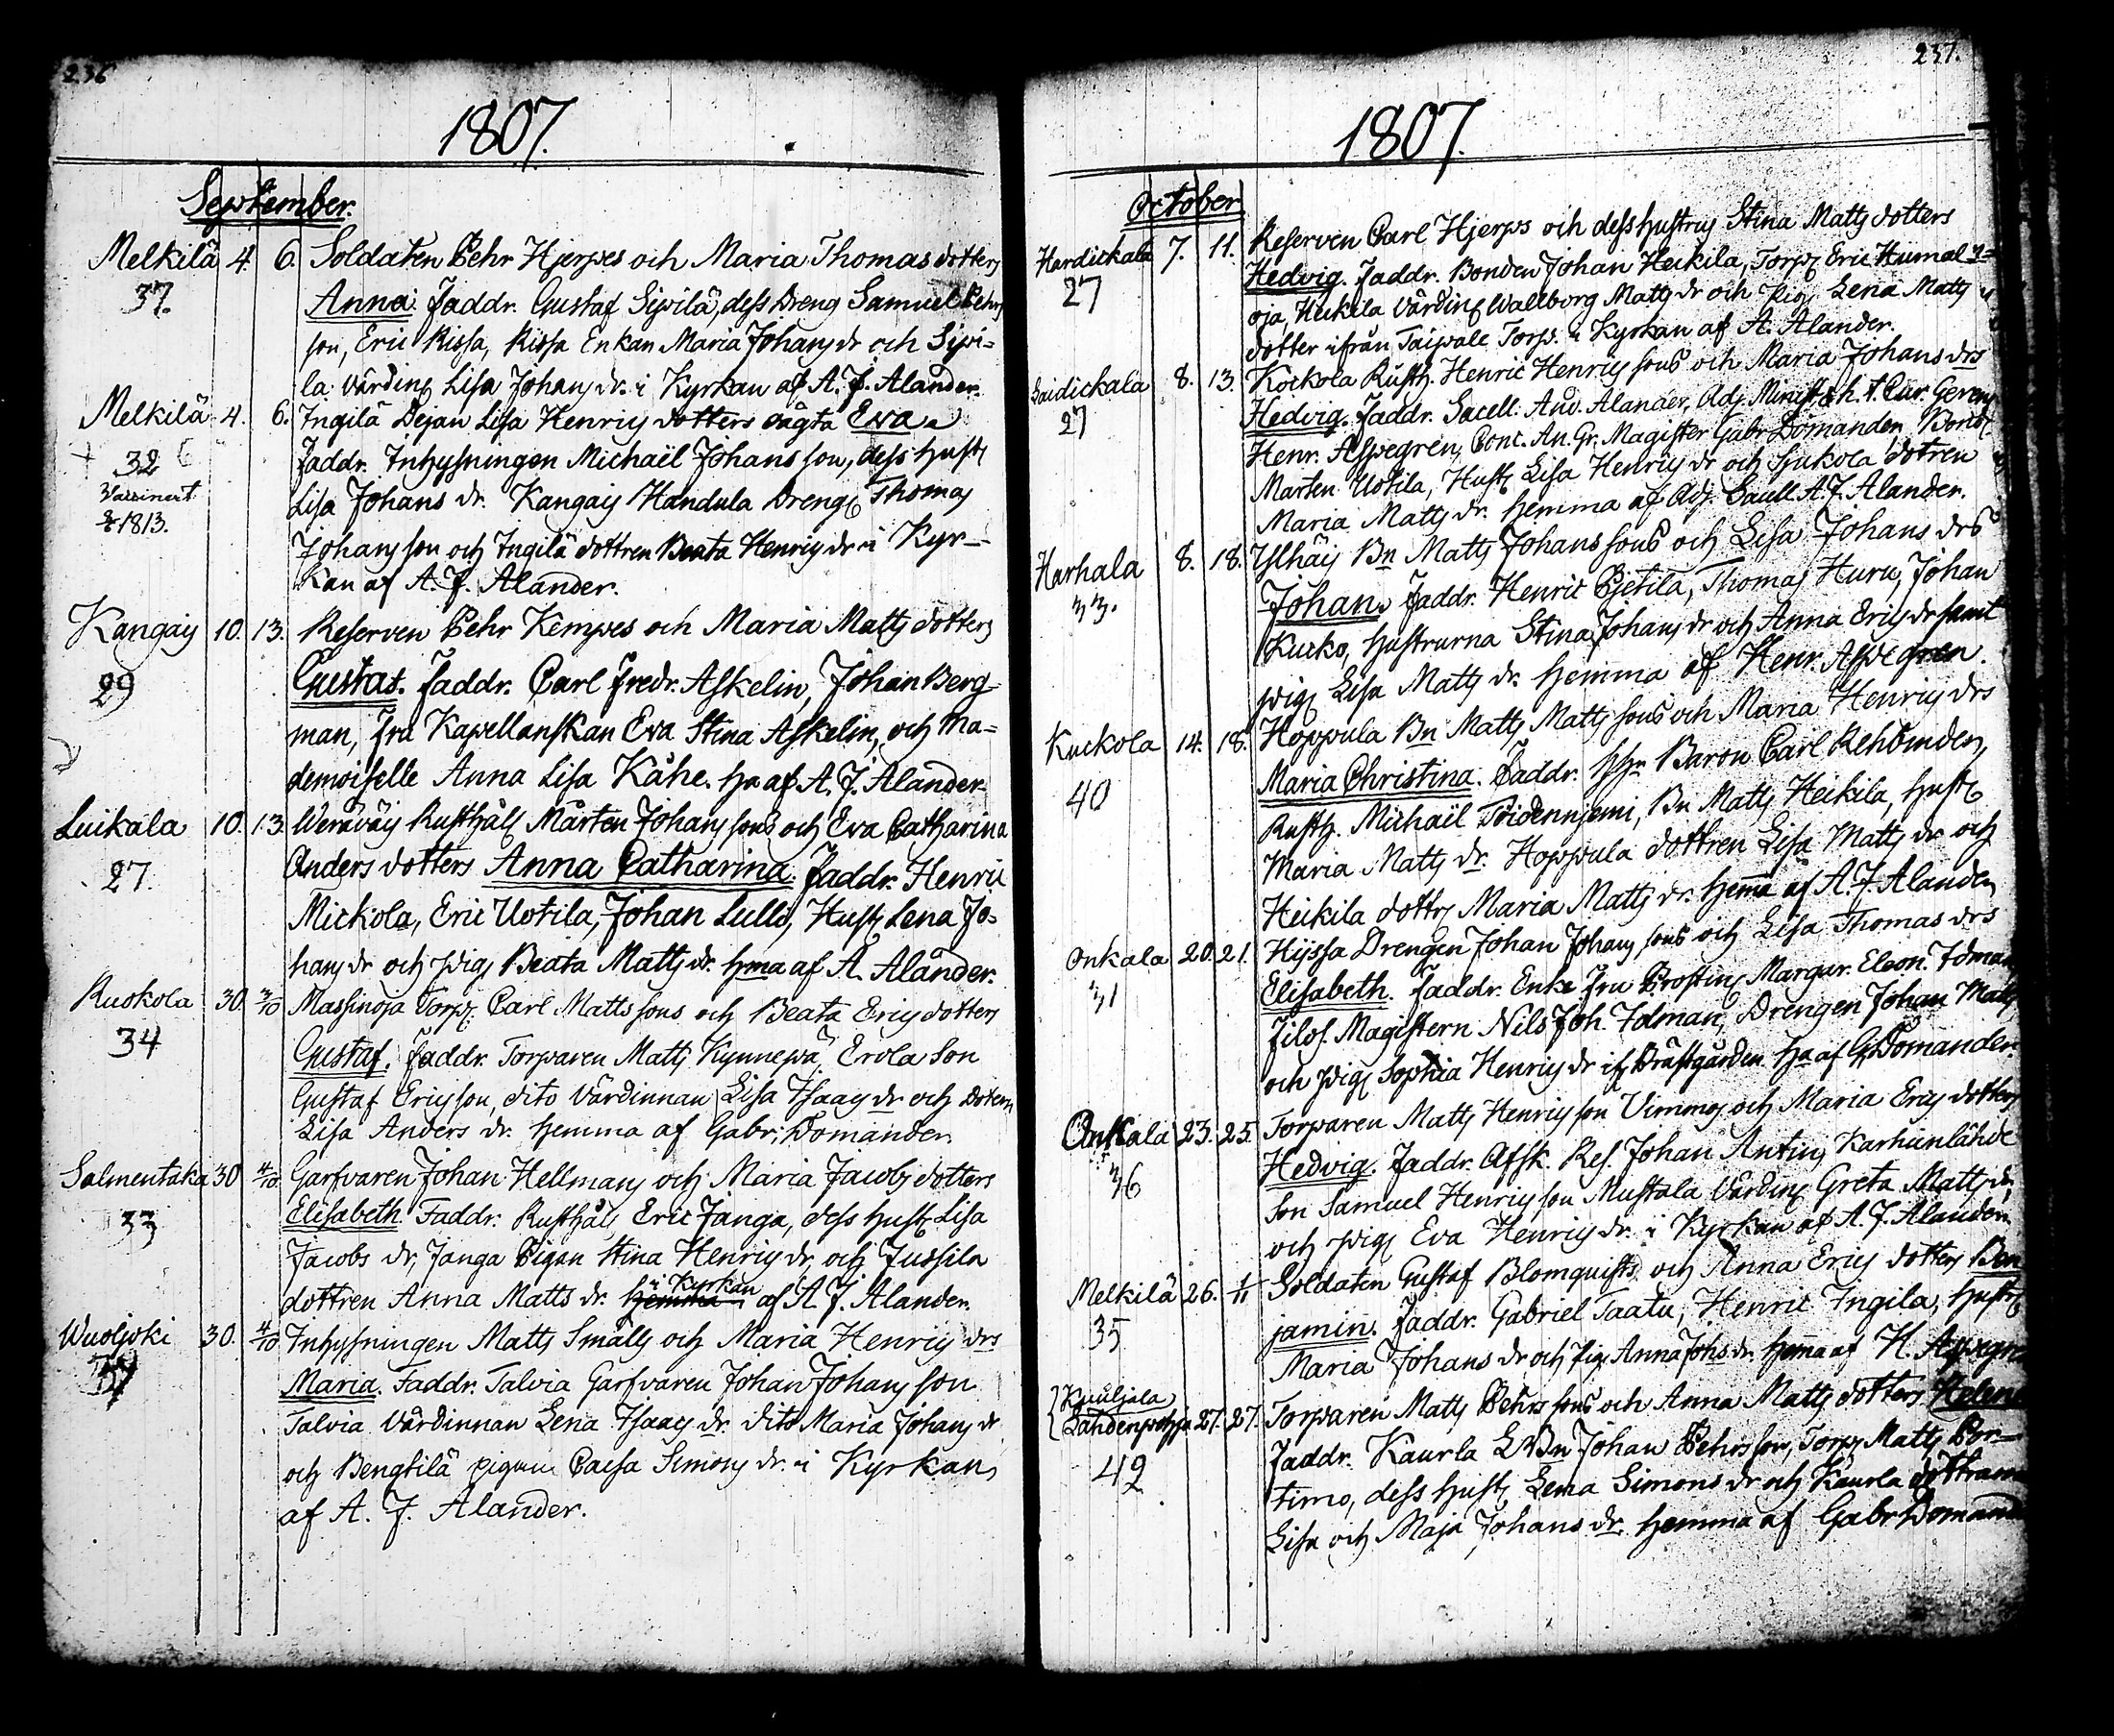 236
1807.
September.
Melkilä 4. 6. Soldaten Pehr Hjerpes och Maria Thomas dotters
37. Anna. Faddr. Gustaf Sipilä, dess Dreng Samuel Pehrs
son, Eric Rissa, Rissa Enkan Maria Johans dr och Sipi-
la Värdin Lisa Johans dr. i Kyrkan af A. J. Alander.
Melkilä 4. 6. Ingilä Dejan Lisa Henrics dotters oägta Eva.
32 Faddr. Inhysningen Michaël Johansson, dess hust
Vaccinerat Lisa Johans dr. Kangais Handula Dreng Thomas
1813. Johansson och Ingilä dottren Beata Henrics dr i Kyr-
kan af A. J. Alander.
Kangais 10. 13. Reserven Pehr Kempes och Maria Matts dotters
29 Gustaf. Faddr. Carl Fredr. Askelin, Johan Berg-
man, fru Kapellanskan Eva Stina Askelin, och Ma-
demoiselle Anna Lisa Kåhe. ha af A. J. Alander.
Luikala 10. 13. Weräväj Rusthål Mårten Johans sons och Eva Catharina
27. Anders dotters Anna Catharina. Faddr. Henric
Mickola, Eric Uotila, Johan Lulli, Hust Lena Jo-
hans dr och pig Beata Matts dr. hma af A. Alander.
Ruokola 30. 3/10 Massinoja Torp. Carl Matts sons och Beata Erics dotters
34 Gustaf. Faddr. Torparen Matts Kynnepä, Erola Son
Gustaf Ericsson, dito Värdinnan Lisa Isaacs dr och Dotern
Lisa Anders dr. hemma af Gabr. Domander.
Salmentaka 30 4/10 Garfvaren Johan Hellmans och Maria Jacobs dotters
33 Elisabeth. Faddr. Rusthål Eric Janga, dess hust Lisa
Jacobs dr, Janga Pigan Stina Henrics dr, och Jussila
i Kyrkan
dottren Anna Matts dr. hemma af A. J. Alander.
Wuoljoki 30. 4/10 Inhysningen Matts Smålls och Maria Henrics drs
37 Maria. Faddr. Talvia Garfvaren Johan Johansson
Talvia Värdinnan Lena Isaacs dr. dito Maria Johans dr
och Bengtilä pigan Caisa Simons dr. i Kyrkan
af A. J. Alander.
237.
1807.
October
Hardickala 7. 11. Reserven Carl Hjerps och dess hustrus Stina Matts dotters
27 Hedvig. Faddr. Bonden Johan Heikila, Torp Eric Humal-
oja, Heikila Värdin Wallborg Matts dr och Pig Lena Matts
dotter ifrån Taipale Torp. i Kyrkan af A. Alander.
Saidickala 8. 13. Kockola Rusth. Henric Henrics sons och Maria Johans drs
27 Hedvig. Faddr. Sacell. And. Alander, Adj. Minist. &
Henr. Aspegren, Cont. An. Gr. Magister Gabr. Domander, Bond
Marten Uotila, Hust Lisa Henrics dr och Sjukola dotren
Maria Matts dr. hemma af Adj. Sacell A. J. Alander.
Harhala 8. 18. Ylhäis Bn Matts Johans sons och Lisa Johans drs
33. Johan. Faddr. Henric Pjetila, Thomas Huru, Johan
Kucko, hustrurna Stina Johans dr och Anna Erics dr samt
pig Lisa Matts dr. hemma af Henr. Aspegren.
Kuckola 14. 18. Hoppula Bn Matts Matts sons och Maria Henrics drs
40 Maria Christina. Faddr. Baron Carl Rehbinder,
Rusth. Michaël Bn Matts Heikila, hust
Maria Matts dr. Hoppula dottren Lisa Matts dr och
Heikila dottr Maria Matts dr. hemma af A. J. Alander.
Onkala 20. 21. Hyssa Drengen Johan Johans sons och Lisa Thomas drs
31 Elisabeth. Faddr. Enke Fru Prostin Margar. Eleon. Idman
Filos. Magistern Nils Joh. Idman, Drengen Johan Matts
och pig Sophia Henrics dr if Prästgården. ha af G. Domander.
Onkala 23. 25. Torparen Matts Henricsson Vimmos och Maria Erics dotters
36 Hedvig. Faddr. Afsk. Res. Johan Antin, Karhunlähde
Son Samuel Henricsson Mustala Värdin Greta Matts dr,
och pig Eva Henrics dr. i Kyrkan af A. J. Alander.
Melkilä 26. 1/11 Soldaten Gustaf Blomquists och Anna Erics dotters Ben
35 jamin. Faddr. Gabriel Taatu, Henric Ingila, hust
Maria Johans dr och Pig Anna Johs dr. hemma af H. Aspegren
Kuuljala
27. 27. Torparen Matts Pehrs sons och Anna Matts dotters Helena
42 Faddr. Kaurla Bn Johan Pehrsson, Torp Matts Por-
timo, dess hust Lena Simons dr och Kaurla döttrarna
Lisa och Maja Johans dr. hemma af Gabr Domander